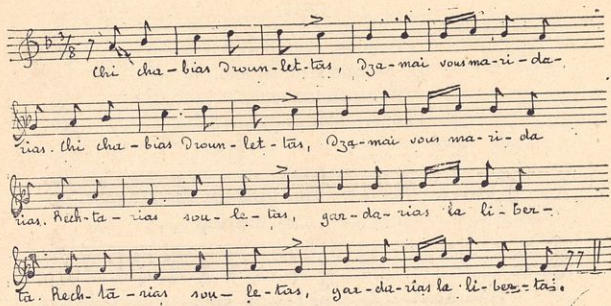 3/8
Chi cha-bias Droun-let-tas, Dza-mai vous ma-ri-da-
rias. Chi cha-bias Droun-let-tas, Dza-mai vous ma-ri-da
rias. Rech-ta-rias sou-le-tas, gar-da-rias la li-ber-
ta. Rech-ta-rias sou-le-tas, gar-da-rias la li-ber-tas.